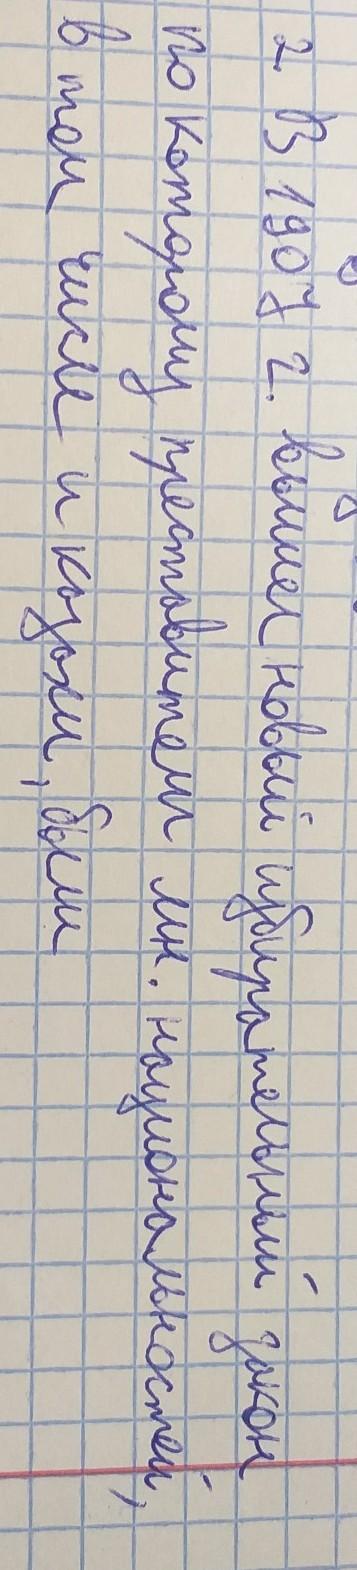 2. В 1907 г. вышел новый избирательный закон
по которому преставители мн. национальностей,
в том числе и казахи, были